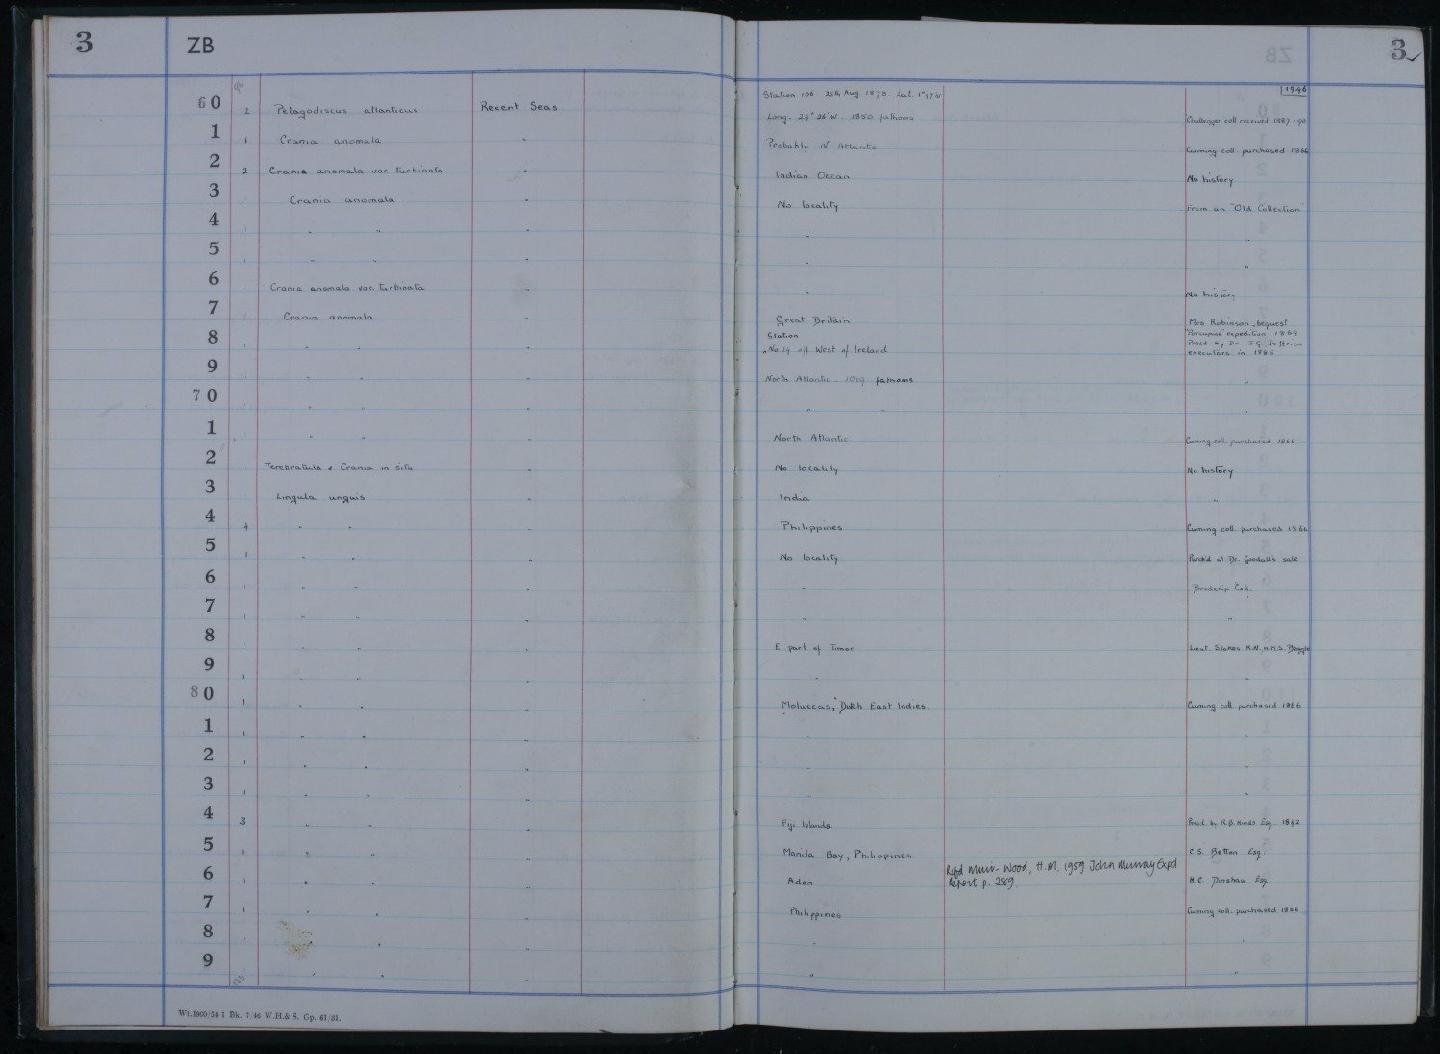 3 ZB 3
1946
60 2 Pelagodiscus atlanticus Recent Seas Station 106. 25th Aug 1873. Lat. 1°47'N
Long. 24° 26'W. 1850 fathoms Challenger coll. received 1887-90
1 1 Crania anomala " Probably N Atlantic Cuming coll. purchased 1866
2 2 Crania anomala var. turbinata " Indian Ocean No history
3 Crania anomala " No locality From an "Old Collection"
4 " " " " "
5 " " " " "
6 Crania anomala var. turbinata " " No history
7 Crania anomala " Great Britain Mrs Robinson bequest
8 " " " Station
No 14 off West of Ireland "Porcupine" expedition 1869
executors in 1885
9 " " " North Atlantic 1019 fathoms "
70 " " " " " "
1 " " " North Atlantic Cuming coll. purchased 1866
2 Terebratula & Crania in situ " No locality No history
3 Lingula unguis " India "
4 4 " " " Philippines Cuming coll. purchased 1866
5 1 " " " No locality Purch'd at Dr. Goodall's sale
6 " " " " Broderip Coll.
7 " " " " "
8 " " " E part of Timor Lieut. Stokes R.N., H.M.S. Beagle
9 1 " " " " "
80 1 " " " Moluccas, Dutch East Indies. Cuming coll. purchased 1866
1 1 " " " " "
2 1 " " " " "
3 1 " " " " "
4 3 " " " Fiji Islands Pres'd. by R.B. Hinds Esq. 1842
5 1 " " " Manila Bay, Philippines C.S. Betton Esq.
6 1 " " " Aden Refd Muir-Wood, H.M. 1959 John Murray Expd
Report p. 289. H.C. Dinshaw Esq.
7 1 " " " Philippines Cuming coll. purchased 1866
8 " " " "
9 " " " " "
Wt.1900/54 1 Bk. 7/46 W.H.& S. Gp. 61/31.